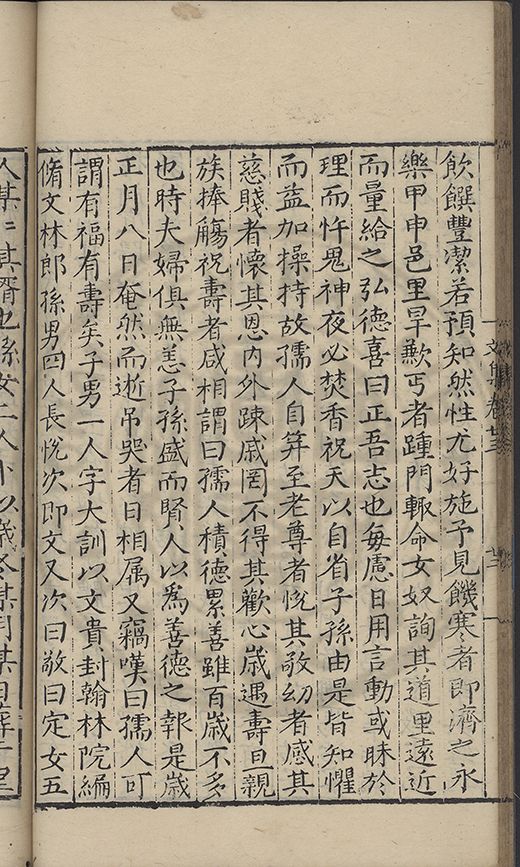 飲饌豐潔若預知然性尤好施予見饑寒者即濟之永
樂甲申邑里旱歉丐者踵門輙命女奴詢其道里遠近
而量給之弘德喜曰正吾志也每慮日用言動或昧於
理而忤鬼神夜必焚香祝天以自省子孫由是皆知懼
而益加操持故孺人自筓至老尊者恱其敬幼者感其
慈賤者懷其恩内外踈戚罔不得其歡心歲遇壽旦親
族捧觴祝壽者咸相謂曰孺人積德累善雖百歲不多
也時夫婦俱無恙子孫盛而賢人以爲善德之報是歲
正月八日奄然而逝吊哭者日相属又竊嘆曰孺人可
謂有福有壽矣子男一人字大訓以文貴封翰林院編
脩文林郎孫男四人長恱次即文又次曰敬曰定女五
人某某其壻也孫女二人
文集卷廿三